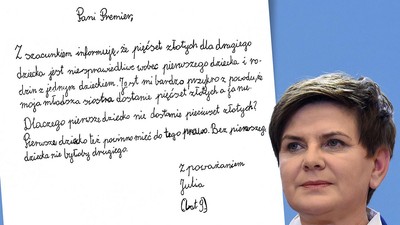 Pani Premier,
Z szacunkiem informuję, że pięćset złotych dla drugiego
dziecka jest niesprawiedliwe wobec pierwszego dziecka i ro-
dzin z jednym dzieckiem. Jest mi bardzo przykro z powodu, że
moja młodsza siostra dostanie pięćset złotych a ja nie.
Dlaczego pierwsze dziecko nie dostanie pięciuset złotych?
Pierwsze dziecko też powinno mieć do tego prawo. Bez pierwszego
dziecka nie byłoby drugiego.
Z poważaniem
Julia
(lat 9)